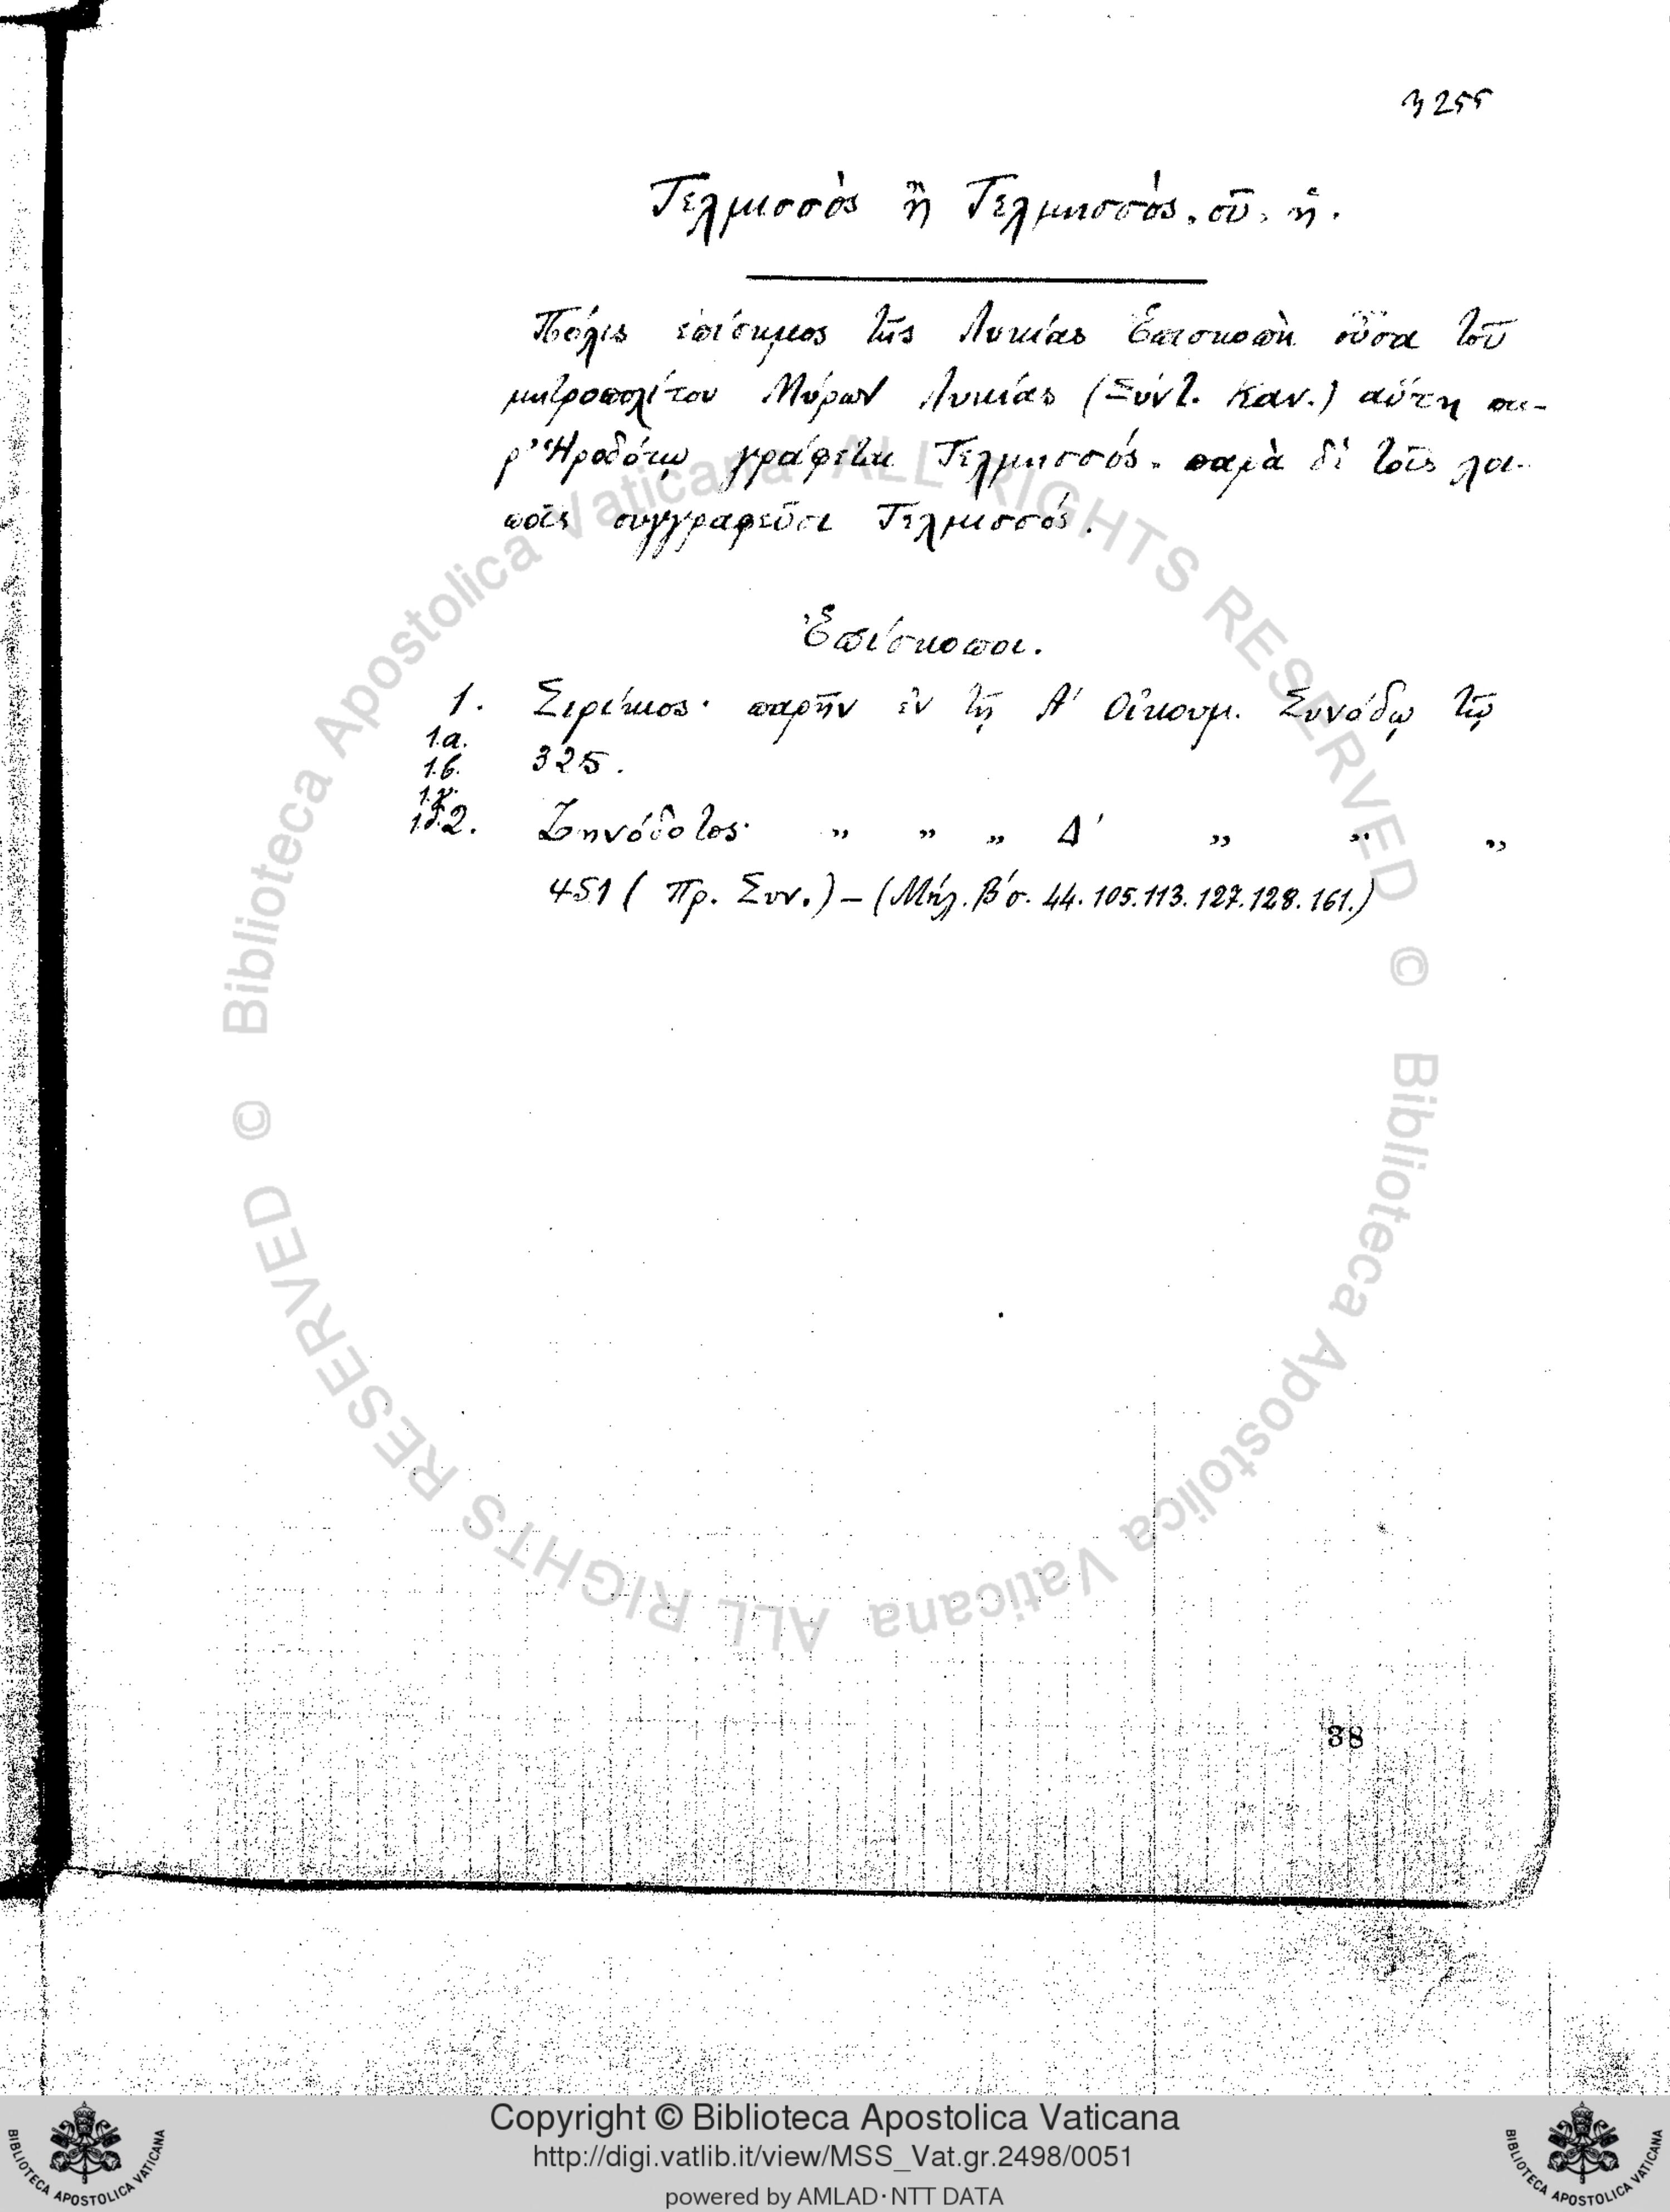 3255
Τελμισσὸς ἢ Τελμησσὸς, οῦ, ἡ.
Πόλις ἐπίσημος τῆς Λυκίας Ἐπισκοπὴ οὖσα τοῦ
μητροπολίτου Μύρων Λυκίας (Σύντ. Καν.) αὕτη πα-
ρ' Ἡροδότῳ γράφεται Τελμησσός. παρὰ δὲ τοῖς λοι-
ποῖς συγγραφεῦσι Τελμισσός.
Ἐπίσκοποι.
1. Σιρίκιος· παρῆν ἐν τῇ Α' Οἰκουμ. Συνόδῳ τῷ
1.α.
325.
1.β.
1.γ.
1.δ.
2. Ζηνόδοτος· „ „ „ Δ' „ „ „
451 ( Πρ. Συν.) – (Μήλ. Β' σ. 44. 105. 113. 127. 128. 161.)
38
© Biblioteca Apostolica Vaticana ALL RIGHTS RESERVED
© Biblioteca Apostolica Vaticana ALL RIGHTS RESERVED
BIBLIOTECA APOSTOLICA VATICANA
Copyright © Biblioteca Apostolica Vaticana
http://digi.vatlib.it/view/MSS_Vat.gr.2498/0051
powered by AMLAD·NTT DATA
BIBLIOTECA APOSTOLICA VATICANA